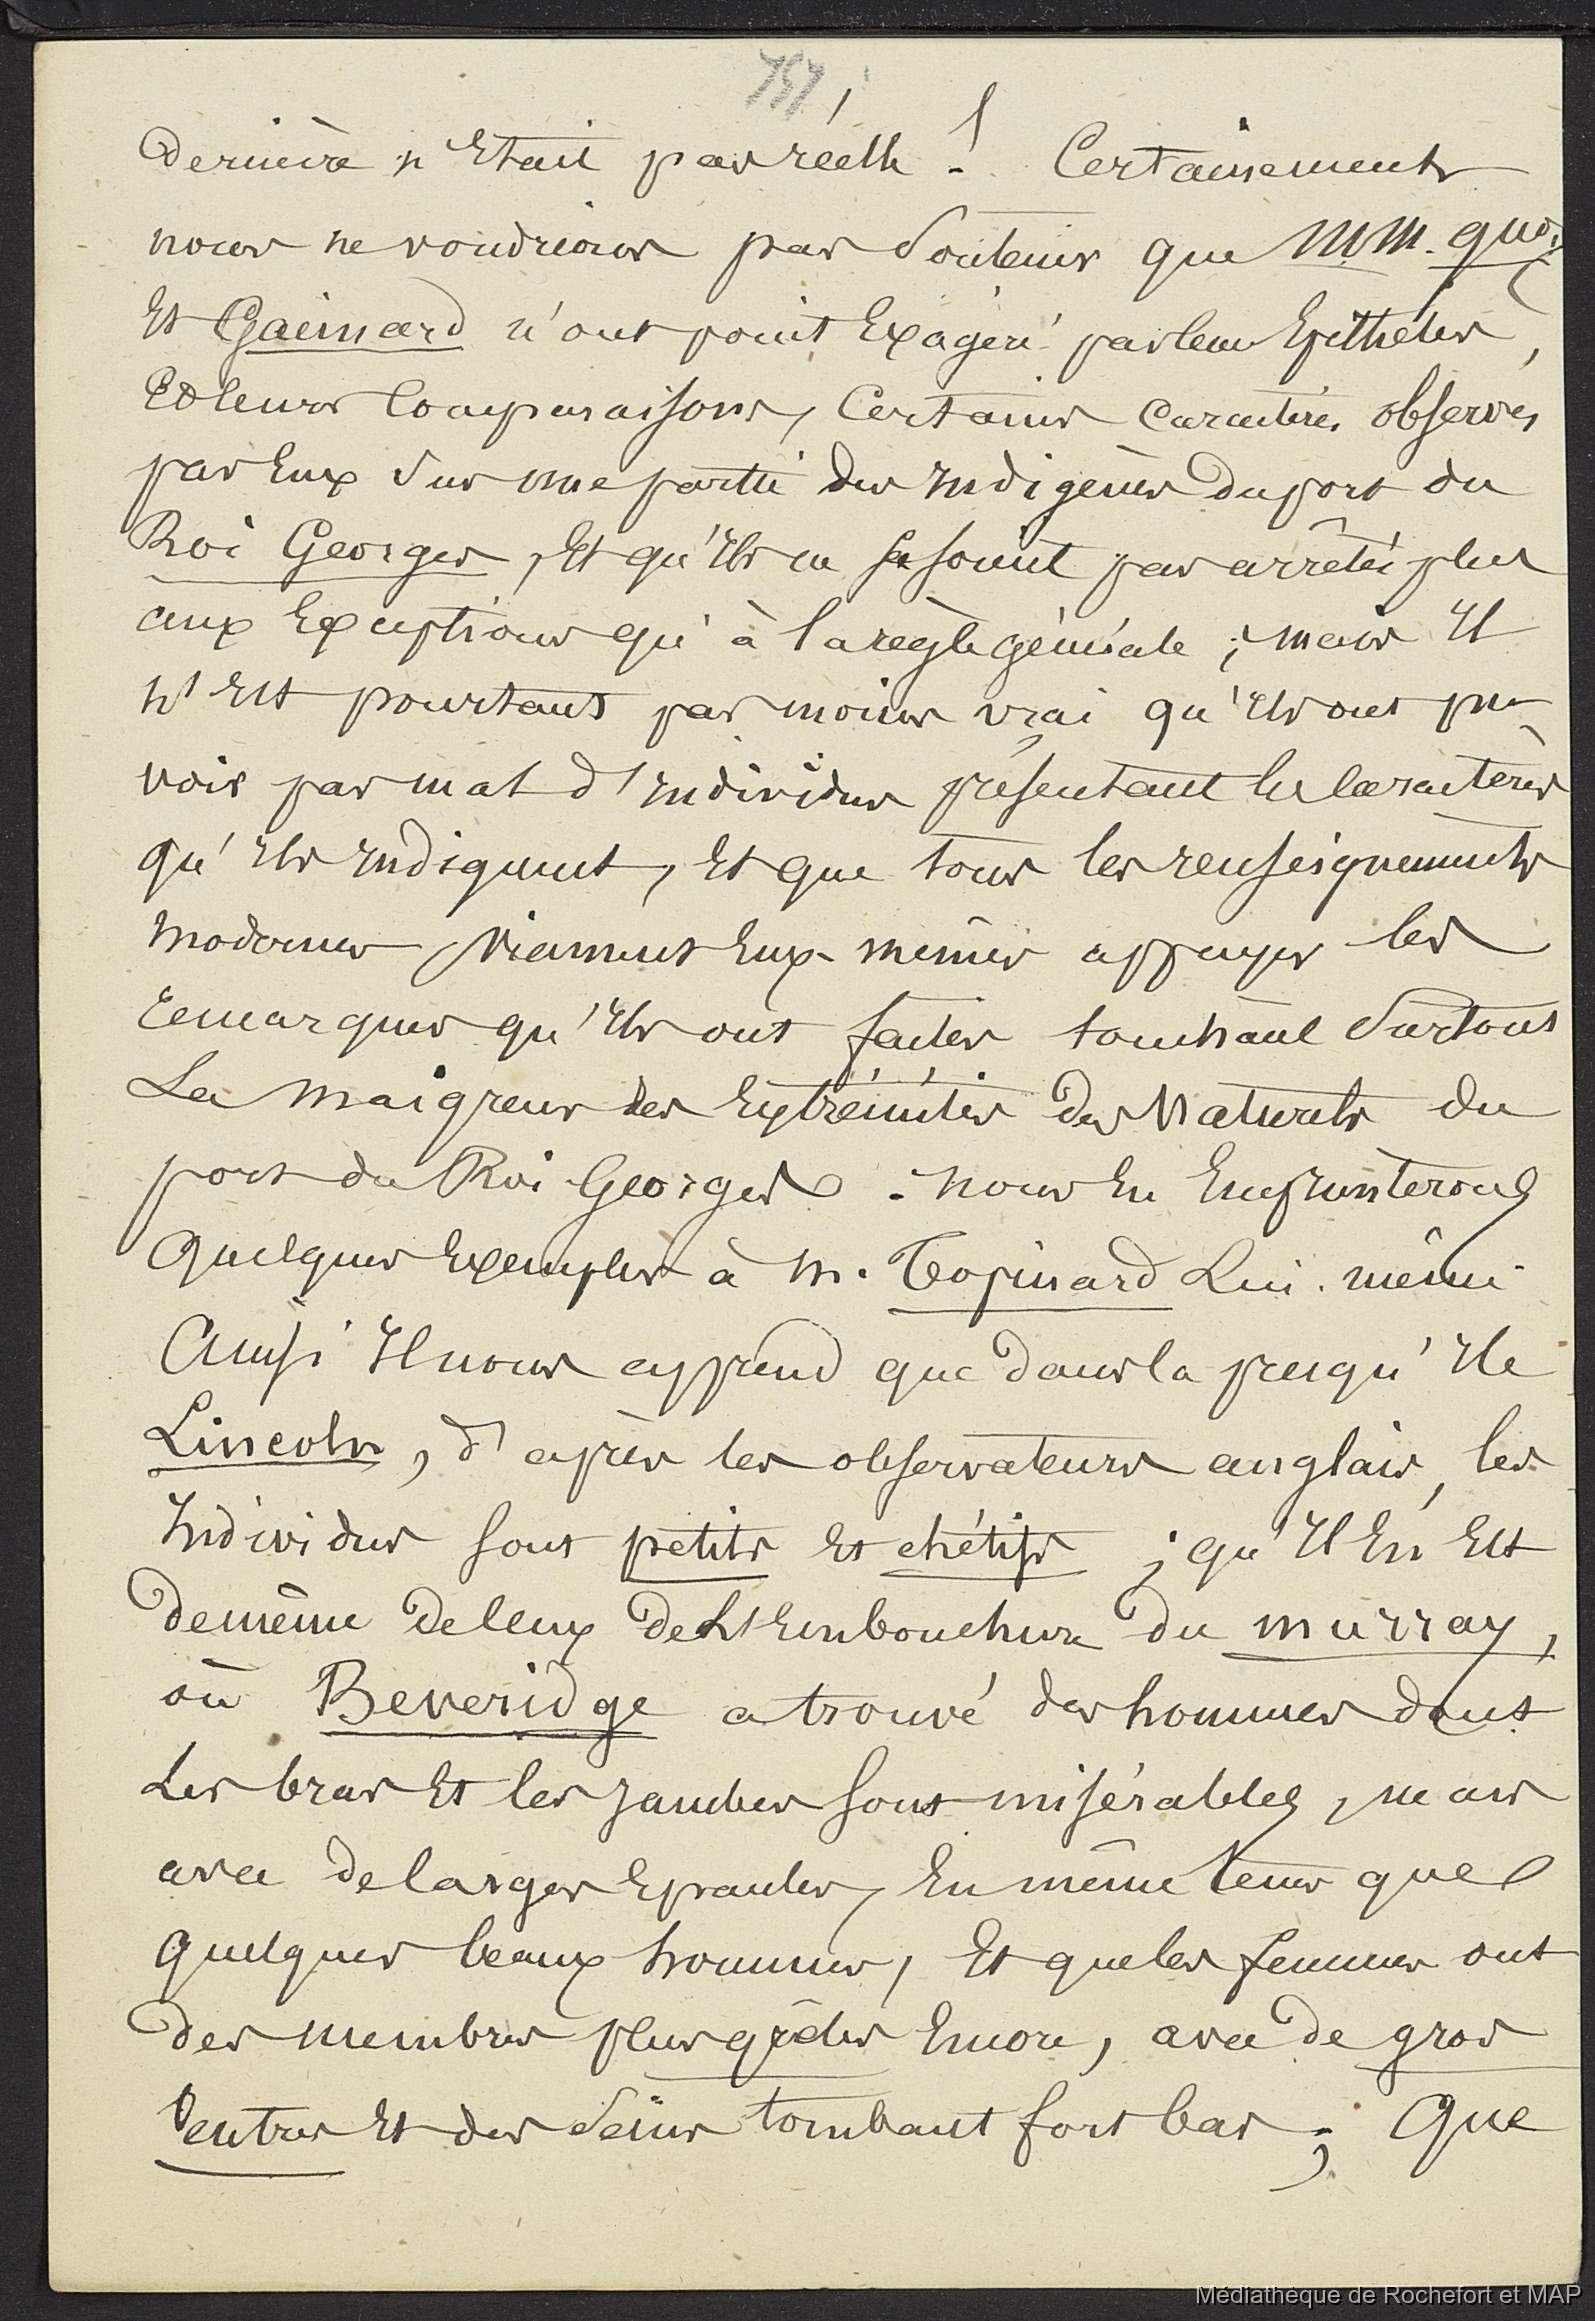 757
Dernière n'Etait pas réelle ! Certainement
nous ne voudrions pas Soutenir que MM. quoy
Et Gaimard n'ont point Exagéré par leurs Epithètes,
Et leurs Comparaisons, Certains Caractères observés
par Eux Sur une partie des Indigènes du port du
Roi Georges, Et qu'Ils ne se soient pas arrêtés plus
aux Exceptions qu'à la règle générale ; mais Il
n'Est pourtant pas moins vrai qu'Ils ont pu
voir pas mal d'Individus présentant les Caractères
qu'Ils Indiquent, Et que tous les renseignements
modernes viennent Eux-mêmes appuyer les
remarques qu'Ils ont faites touchant Surtout
La maigreur des Extrémités des Naturels du
port du Roi Georges. nous En Emprunterons
Quelques Exemples à M. Topinard Lui-même
Ainsi Il nous apprend que dans la presqu'Ile
Lincoln, d'après les observateurs anglais, les
Individus sont petits Et chétifs ; qu'Il En Est
de même de Ceux de L'Embouchure du murray,
où Beveridge a trouvé des hommes dont
Les bras Et les Jambes sont misérables, mais
avec de larges Epaules, En même tems que
Quelques beaux hommes, Et que les femmes ont
des membres plus grêles Encore, avec de gros
Ventres Et des Seins tombant fort bas ; Que
Médiathèque de Rochefort et MAP